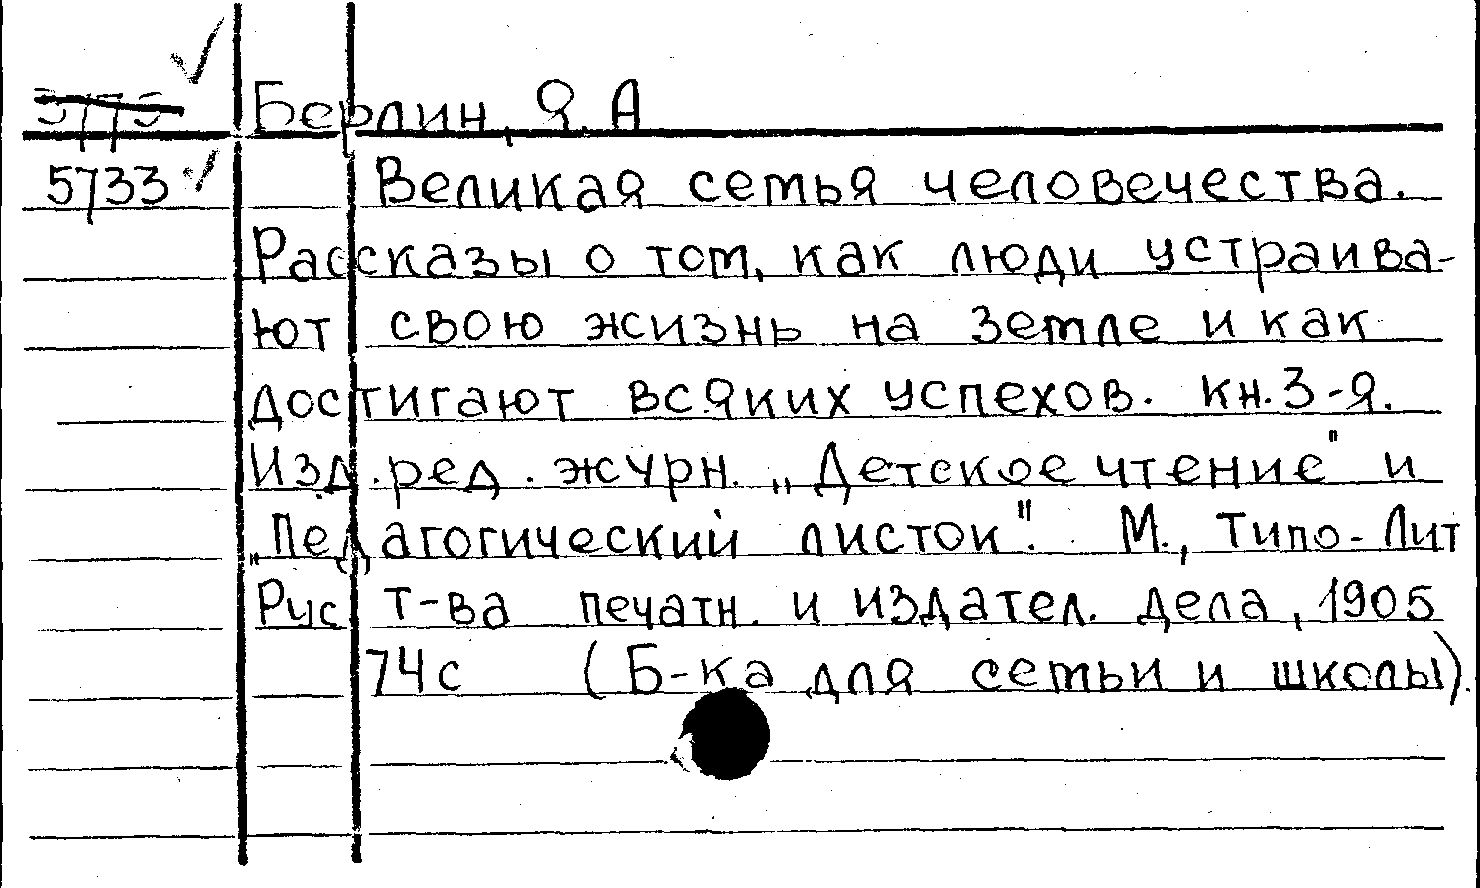 Берлин, Я. А
5733 Великая семья человечества.
Рассказы о том, как люди устраива-
ют свою жизнь на Земле и как
достигают всяких успехов. кн. 3-я.
Изд. ред. журн. „Детское чтение" и
„Педагогический листок". М., Типо-Лит
Рус т-ва печатн. и издател. дела, 1905
74с (Б-ка для семьи и школы).